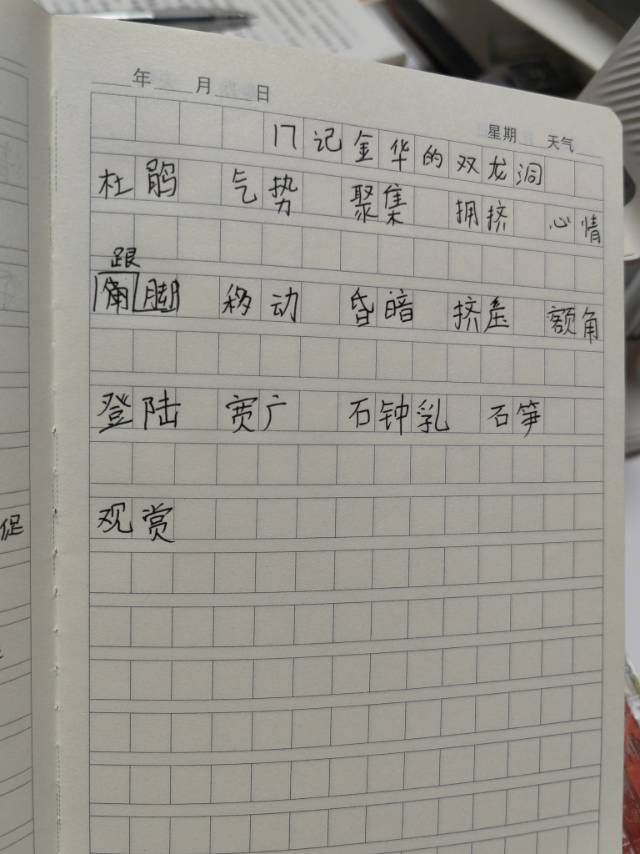 年 月 日
星期 天气
17 记金华的双龙洞
杜鹃 气势 聚集 拥挤 心情
跟
脚 移动 昏暗 挤压 额角
登陆 宽广 石钟乳 石笋
观赏
促